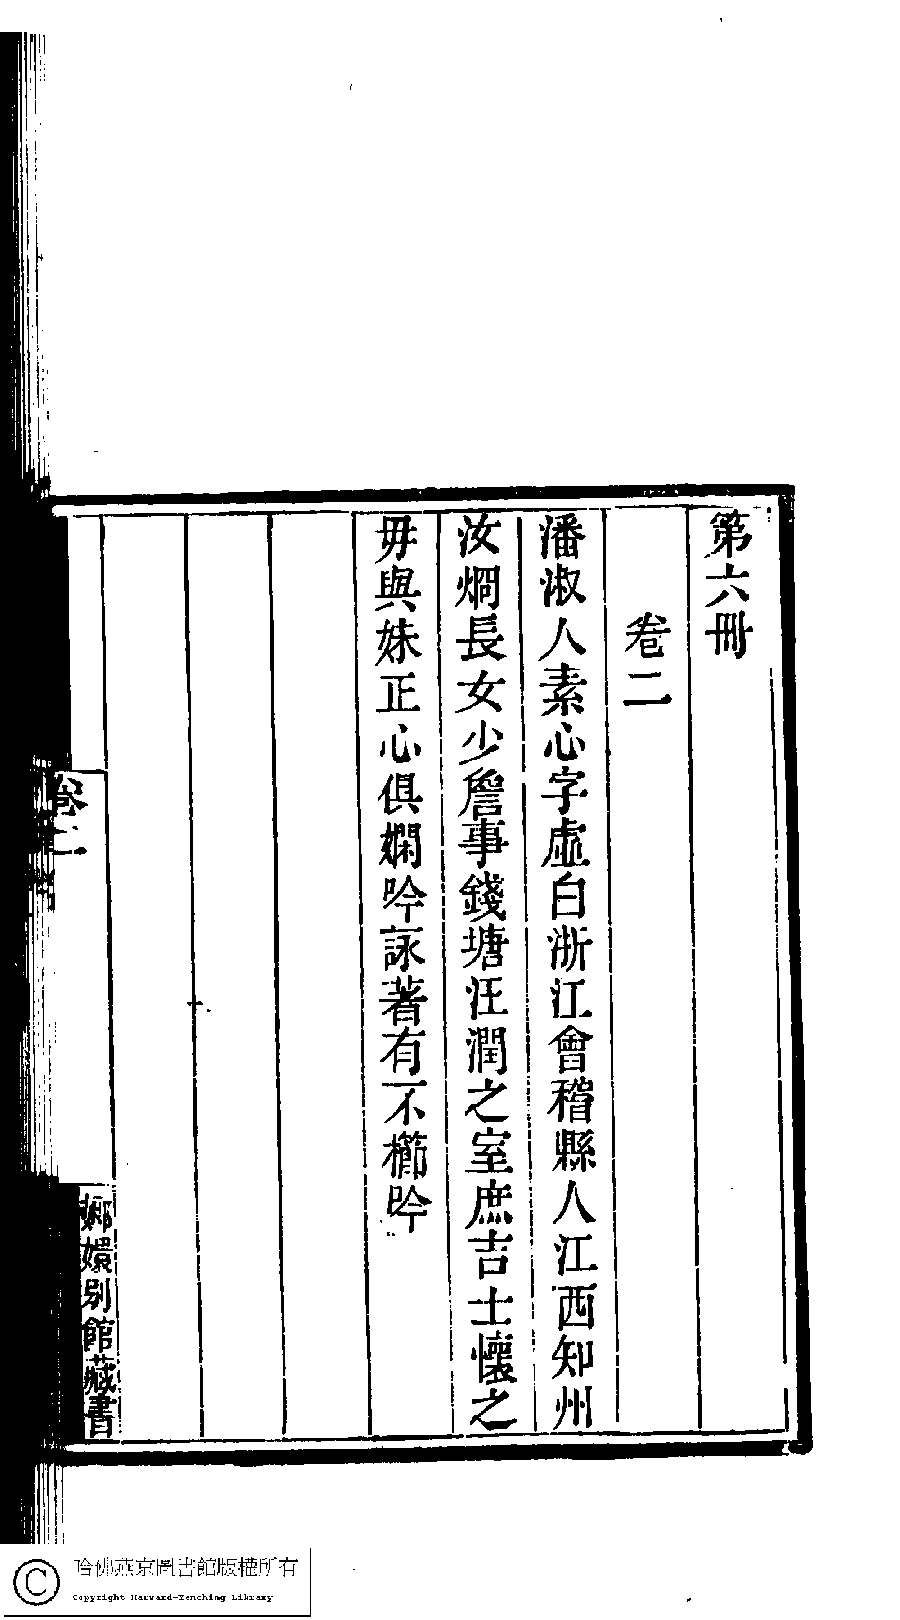 第六冊
卷二
潘淑人素心字虛白浙江會稽縣人江西知州
汝烱長女少詹事錢塘汪潤之室庶吉士懷之
毋與妹正心俱嫻吟詠著有不櫛吟
卷二
嫏嬛別館藏書
哈佛燕京圖書館版權所有
Copyright Harvard-Yenching Library